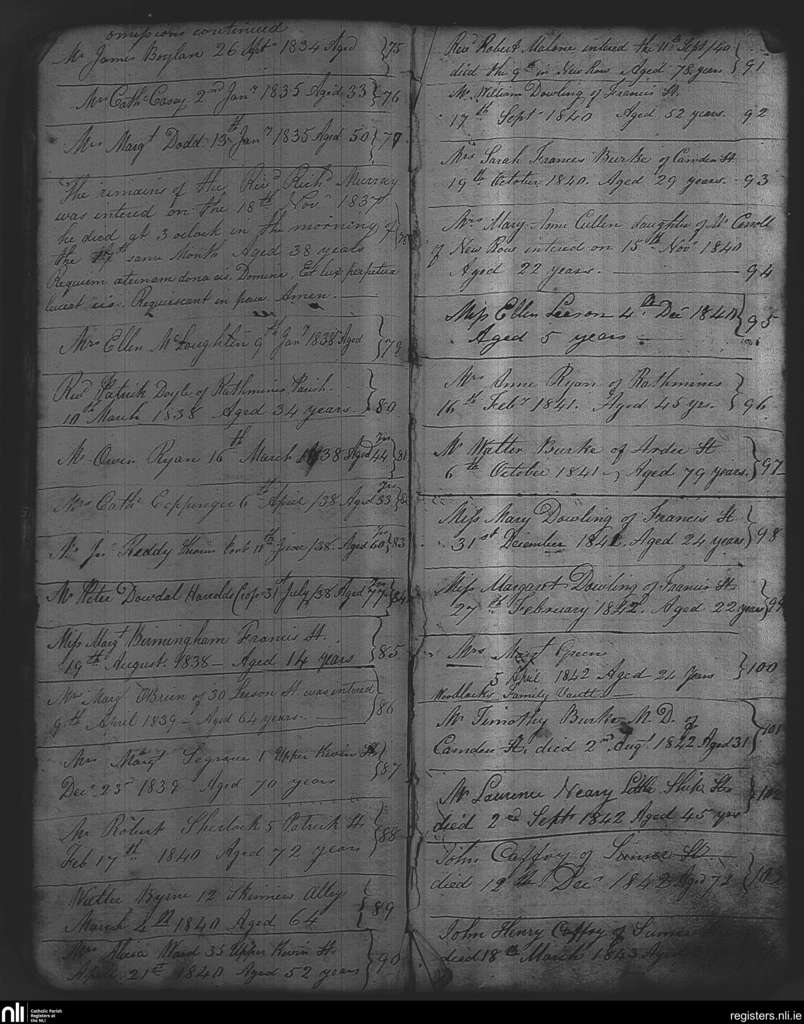 omissions continued
Mr James Boylan 26 Sept 1834 Aged } 75
Mrs Cath. Casey 2nd Jany 1835 Aged 33 } 76
Mrs Margt Dodd 13th Jany 1835 Aged 50 } 77
The remains of the Revd Richd Murray
was intered on the 18th Novr 1837
he died at 3 oclock in the morning of } 78
the 17th same Month Aged 38 years
Requiem aeternam dona eis. Domine. Et lux perpetua
luceat eis. Requiescant in pace Amen.
Mrs Ellen McLoughlin 9th Jany 1838 Aged } 79
Revd Patrick Doyle of Rathmines Parish.
10th March 1838 Aged 34 years. } 80
Mr Owen Ryan 16th March 1838 Aged 44 } 81
Mrs Cath. Coppenger 6th April /38 Aged 83 } 82
Reddy Kevin 11th June /38. Aged 60 } 83
Mr Peter Dowdal Harolds 31st July /38 Aged 77 } 84
Miss Margt Birmingham Francis St.
19th August. 1838 – Aged 14 years } 85
Mrs Mary O'Brien of 30 Leeson St was intered
9th April 1839 – Aged 64 years. } 86
Mrs Margt Segrave 1 Upper Kevin St
Decr 23rd 1839 Aged 70 years } 87
Mr Robert Sherlock 5 Patrick St
Feb 17th 1840 Aged 72 years } 88
Walter Byrne 12 Skinners Alley
March 4th 1840 Aged 64 } 89
Mrs Alicia Ward 35 Upper Kevin St.
April 21st 1840 Aged 52 years } 90
Revd Robert Malone intered the 11th Sept /40
died the 9th in New Row Aged 78 years } 91
Mr William Dowling of Francis St.
17th Sept 1840 Aged 52 years. 92
Mrs Sarah Frances Burke of Camden St
19th October 1840. Aged 29 years. 93
Mrs Mary Anne Cullen daughter of Mr Carroll
of New Row intered on 15th Novr 1840
Aged 22 years. 94
Miss Ellen Leeson 4th Decr 1840 } 95
Aged 5 years
Mrs Anne Ryan of Rathmines
16th Feby 1841. Aged 45 yrs. } 96
Mr Walter Burke of Ardee St
6th October 1841 – Aged 79 years. } 97
Miss Mary Dowling of Francis St
31st December 1841. Aged 24 years } 98
Miss Margaret Dowling of Francis St
27th February 1842. Aged 22 years } 99
Mrs Margt Green
5 April 1842 Aged 24 Years } 100
Woollocks Family Vault
Mr Timothy Burke M.D. of
Camden St. died 2nd Augt 1842 Aged 31 } 101
Mr Laurence Neary Little Ship St.
died 2nd Septr 1842 Aged 45 yrs } 102
John Caffry of Sumner St
died 12th Decr 1842 Aged 72 } 103
John Henry Caffry of
died 18th March 1843 Aged
nli
Catholic Parish
Registers at
the NLI
registers.nli.ie